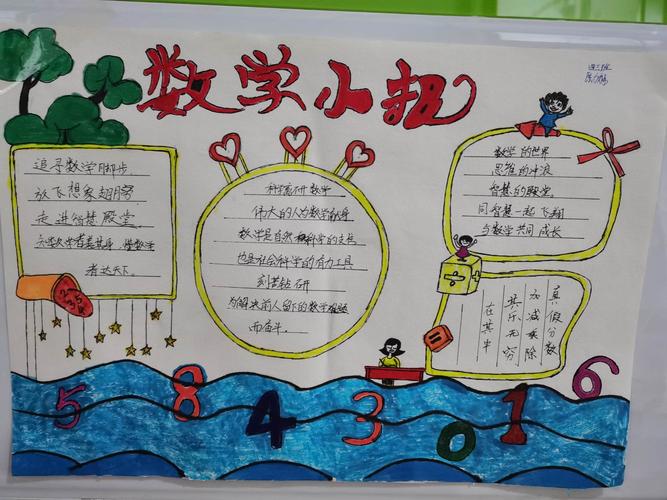 数学小报
四三班
追寻数学脚步
放飞想象翅膀
走进智慧殿堂
者达天下。
科海研数学
伟大的人为数学献身
数学是自然科学的支柱
也是社会科学的有力工具
刻苦钻研
为解决前人留下的数学难题
而奋斗。
数学的世界
思维的冲浪
智慧的殿堂
同智慧一起飞翔
与数学共同成长
真假分数
加减乘除
其乐无穷
在其中
2
3
5
÷
=
5
8
4
3
0
1
6